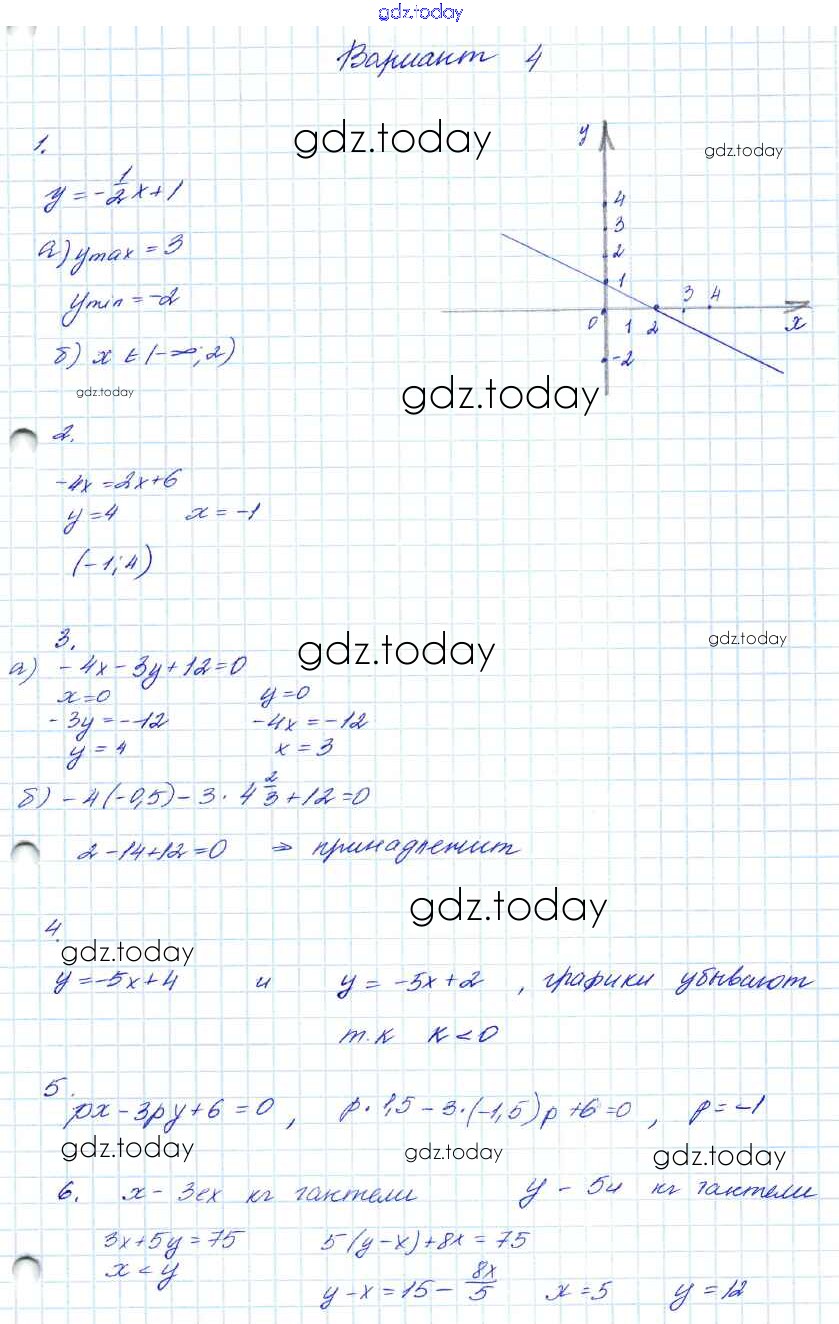 gdz.today
Вариант 4
gdz.today
gdz.today
1.
y = -1/2x+1
а) ymax = 3
ymin = -2
б) x ∈ (-∞; 2)
y
4
3
2
1
0 1 2 3 4 x
-2
gdz.today
gdz.today
2.
-4x = 2x+6
y = 4 x = -1
(-1; 4)
gdz.today
gdz.today
3.
а) -4x - 3y + 12 = 0
x = 0 y = 0
-3y = -12 -4x = -12
y = 4 x = 3
б) -4(-0,5) - 3 · 4 2/3 + 12 = 0
2 - 14 + 12 = 0 ⇒ принадлежит
gdz.today
4.
gdz.today
y = -5x+4 и y = -5x+2, графики убывают
т.к k < 0
5.
px - 3py + 6 = 0, p · 1,5 - 3 · (-1,5)p + 6 = 0, p = -1
gdz.today
gdz.today
gdz.today
6. x - 3ех кг гантели y - 5и кг гантели
3x + 5y = 75 5(y-x) + 8x = 75
x < y
y - x = 15 - 8x/5 x = 5 y = 12